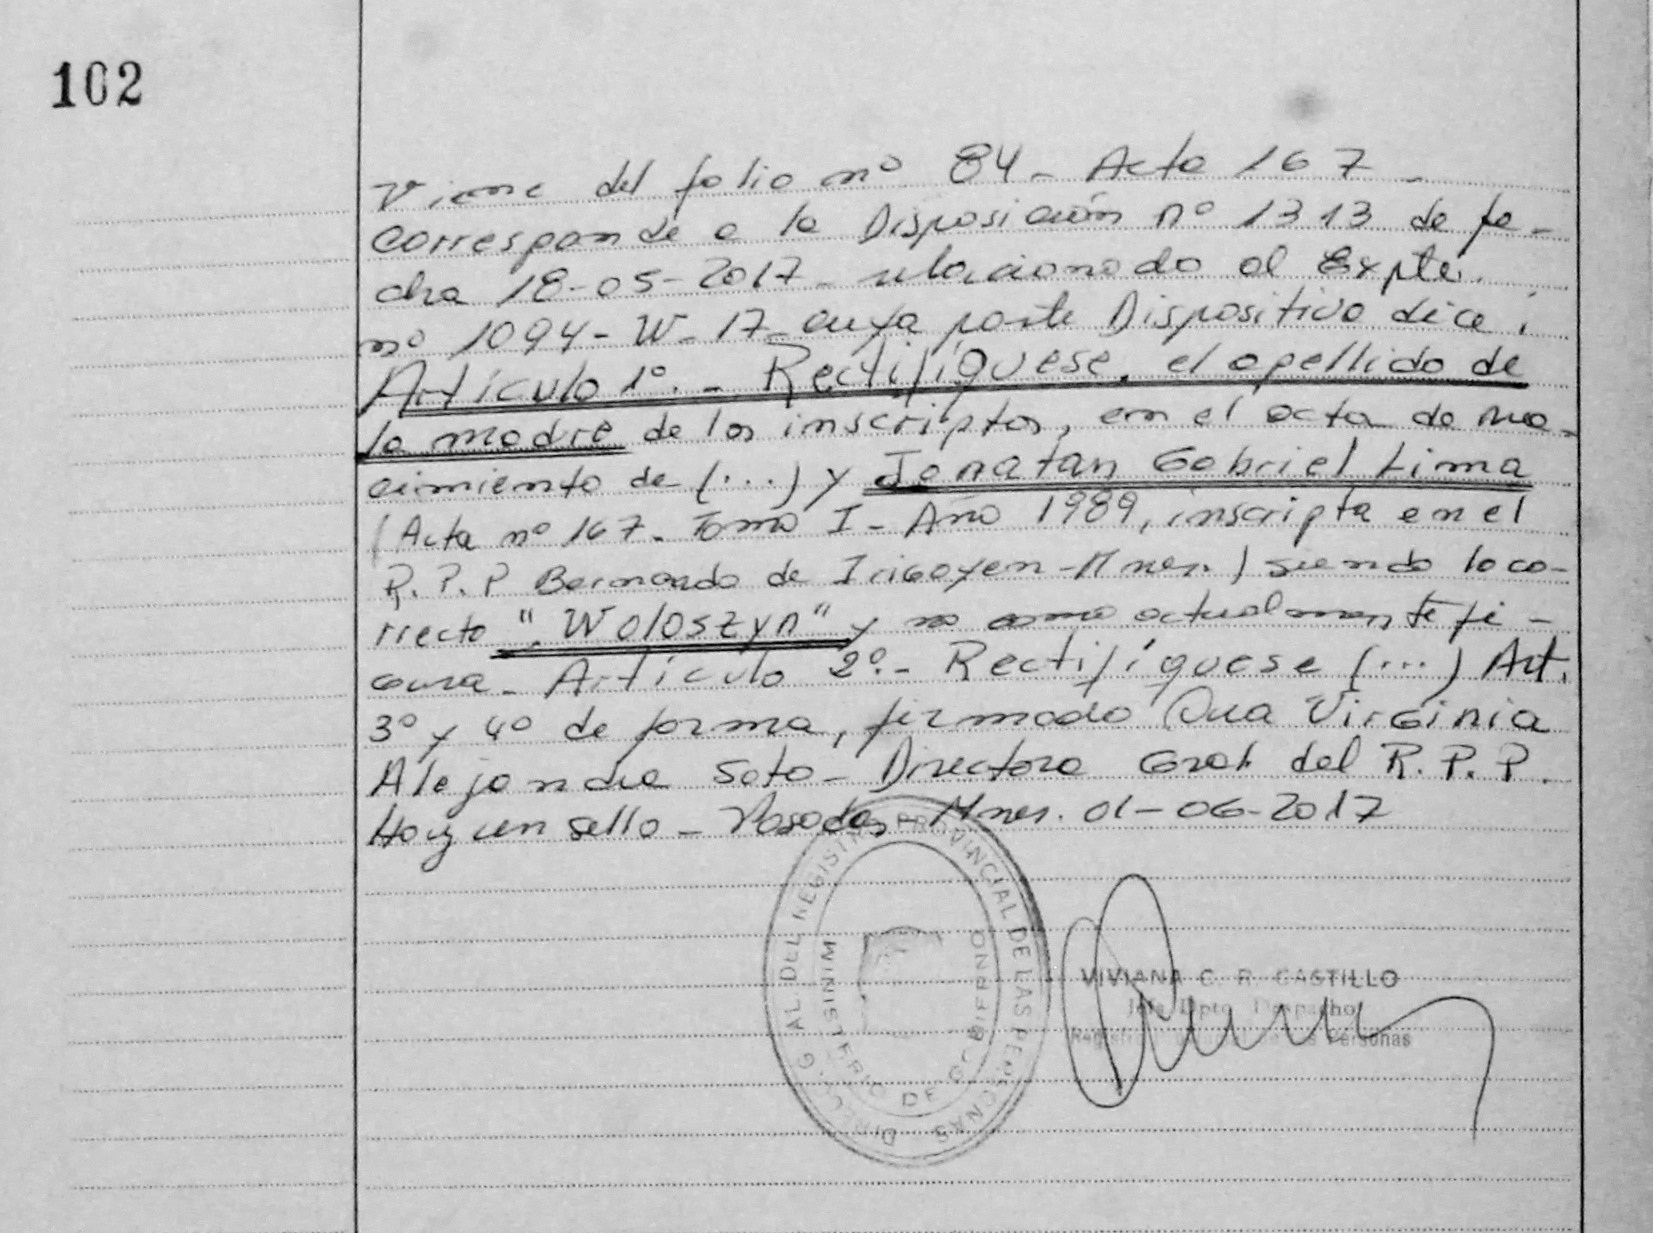 102
Viene del folio nº 84 - Acta 167 -
Corresponde a la Disposición nº 1313 de fe-
cha 18-05-2017 - relacionado al Expte.
nº 1094 - W - 17 - cuya parte Dispositiva dice:
Artículo 1º. - Rectifíquese, el apellido de
la madre de los inscriptos, en el acta de na-
cimiento de (...) y Jonatan Gabriel Lima
(Acta nº 167 - Tomo I - Año 1989, inscripta en el
R.P.P Bernardo de Irigoyen - Mnes.) siendo lo co-
rrecto "Woloszyn" y no como actualmente fi-
gura - Artículo 2º - Rectifíquese (...) Art.
3º y 4º de forma, firmado Dra Virginia
Alejandra Soto - Directora Gral. del R.P.P.
Hay un sello - Posadas, Mnes. 01-06-2017
DIRECC. G. AL. DEL REGISTRO PROVINCIAL DE LAS PERSONAS
MINISTERIO DE GOBIERNO
VIVIANA C. R. CASTILLO
Jefe Dpto. Despacho
Registro Provincial de las Personas